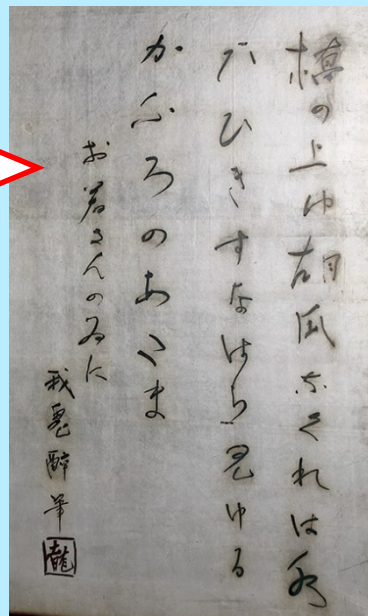 橋の上ゆ胡瓜なくれは水
ひひきすなはち見ゆる
かふろのあたま
お若さんの為に
我鬼醉筆
龍